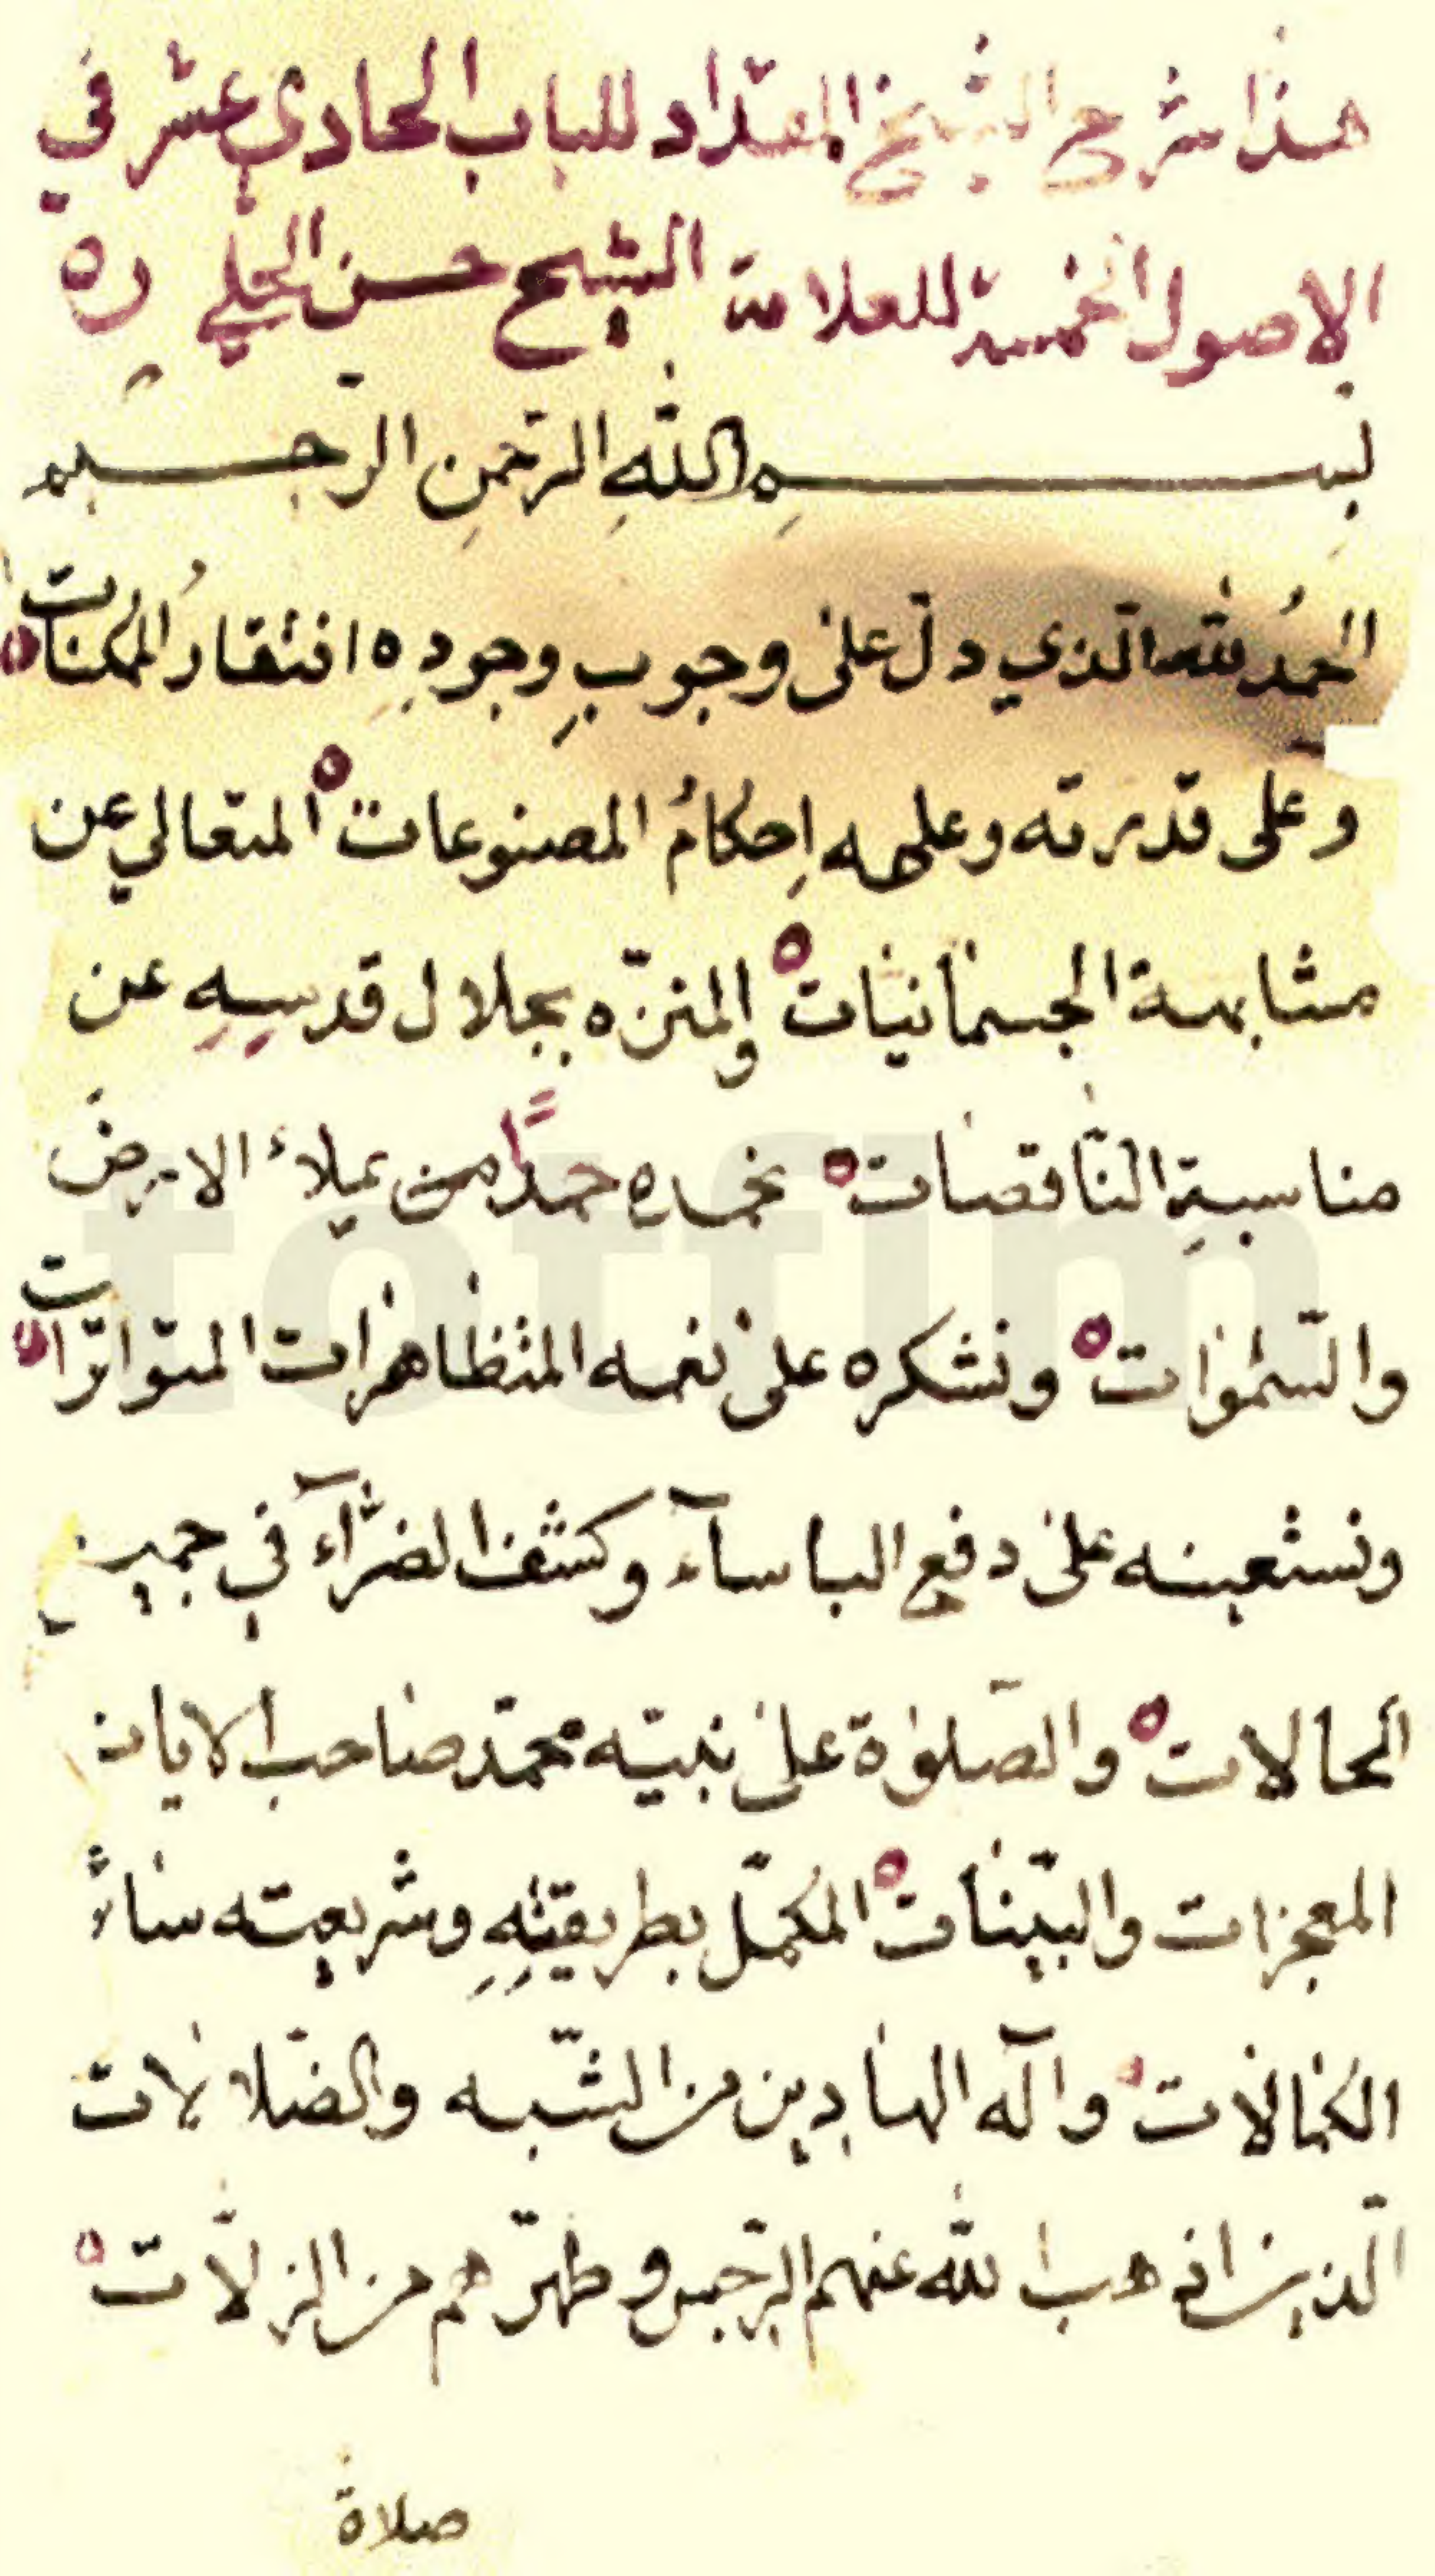 هذا شرح الشيخ المقداد للباب الحادي عشر في
الاصول الخمسة للعلامة الشيخ حسن الحلي ره
بسم الله الرحمن الرحيم
الحمدُ لله الّذي دلّ على وجوبِ وجودِه افتقارُ الممكنات
وعلى قدرته وعلمه إحكامُ المصنوعات المتعالي عن
مشابهة الجسمانيات والمنزّه بجلال قدسِهِ عن
مناسبةِ النّاقصات نحمده حمداً من يملأ الارض
والسّموات ونشكره على نعمه المتظاهرات المتواترات
ونستعينه على دفع الباسآء وكشف الضرّآء في جميع
الحالات والصّلوة على نبيّه محمّد صاحب الايات
المعجزات والبيّنات المكمّل بطريقتِهِ وشريعته سائر
الكمالات وآله الهادين من الشّبه والضّلالات
الّذين اذهب الله عنهم الرّجس وطهّرهم من الزلّات
صلاة
totfim